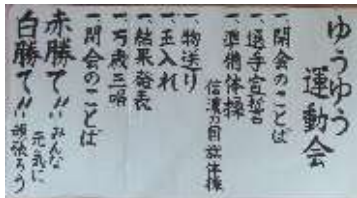 ゆうゆう
運動会
一、開会のことば
一、選手宣誓
一、準備体操
信濃の国旗体操
一、物送り
一、玉入れ
一、結果発表
一、万歳三唱
一、閉会のことば
赤勝て!!みんな
元気に
白勝て!!頑張ろう